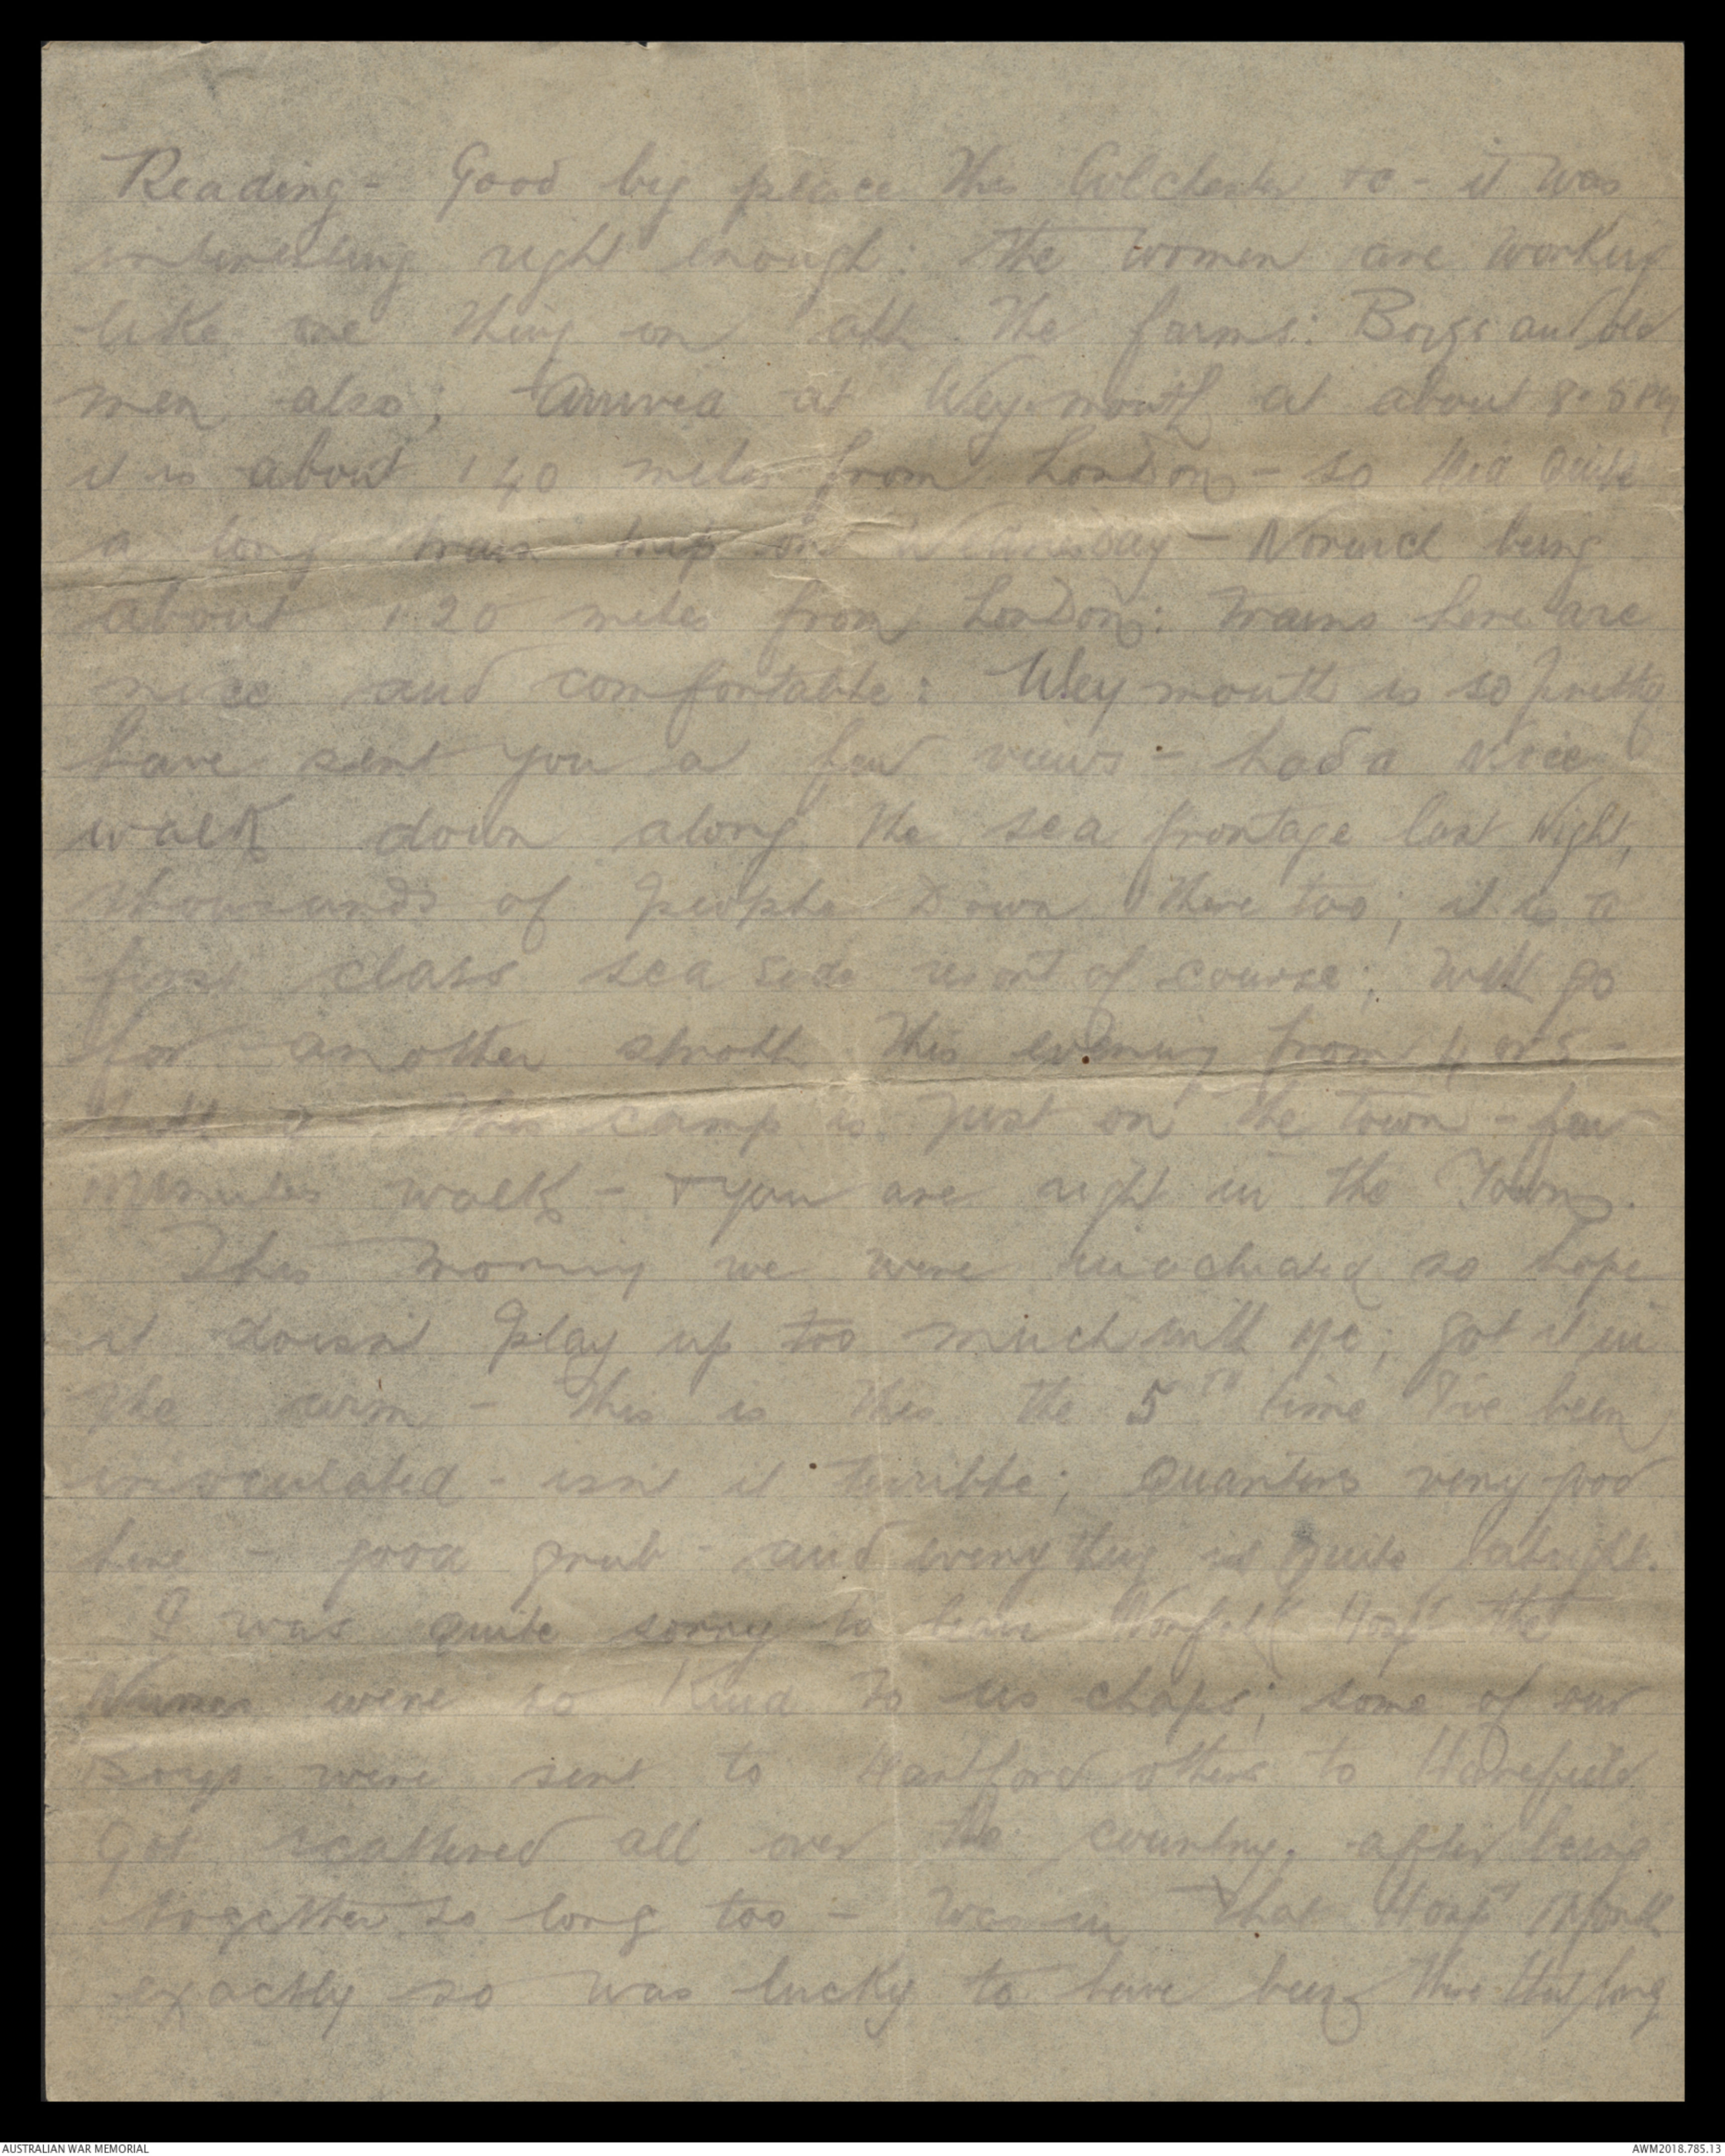 Reading - Good big place this Colchester &c - it was
interesting right enough: the women are working
like one thing on all the farms: Boys and old
men also; Arrived at Weymouth at about 8.5 PM
it is about 140 miles from London - so had quite
a long train trip on Wednesday - Norwich being
about 120 miles from London: Trains here are
nice and comfortable: Weymouth is so pretty
have sent you a few views - had a nice
walk down along the sea frontage last night,
thousands of people down there too; it is a
first class sea side resort of course; will go
for another stroll this evening from 4 or 5 -
this camp is just on the town - few
minutes walk - & you are right in the Town.
This morning we were inoculated so hope
it doesn't play up too much with me; got it in
the arm - this is this the 5th time I've been
inoculated - isn't it terrible; Quarters very good
here - good grub - and everything is quite alright.
I was quite sorry to leave Norfolk Hosp the
Nurses were so kind to us chaps; some of our
Boys were sent to Hartford others to Harefield
Got scattered all over the country, after being
together so long too - was in that Hosp 1 Month
exactly so was lucky to have been there that long